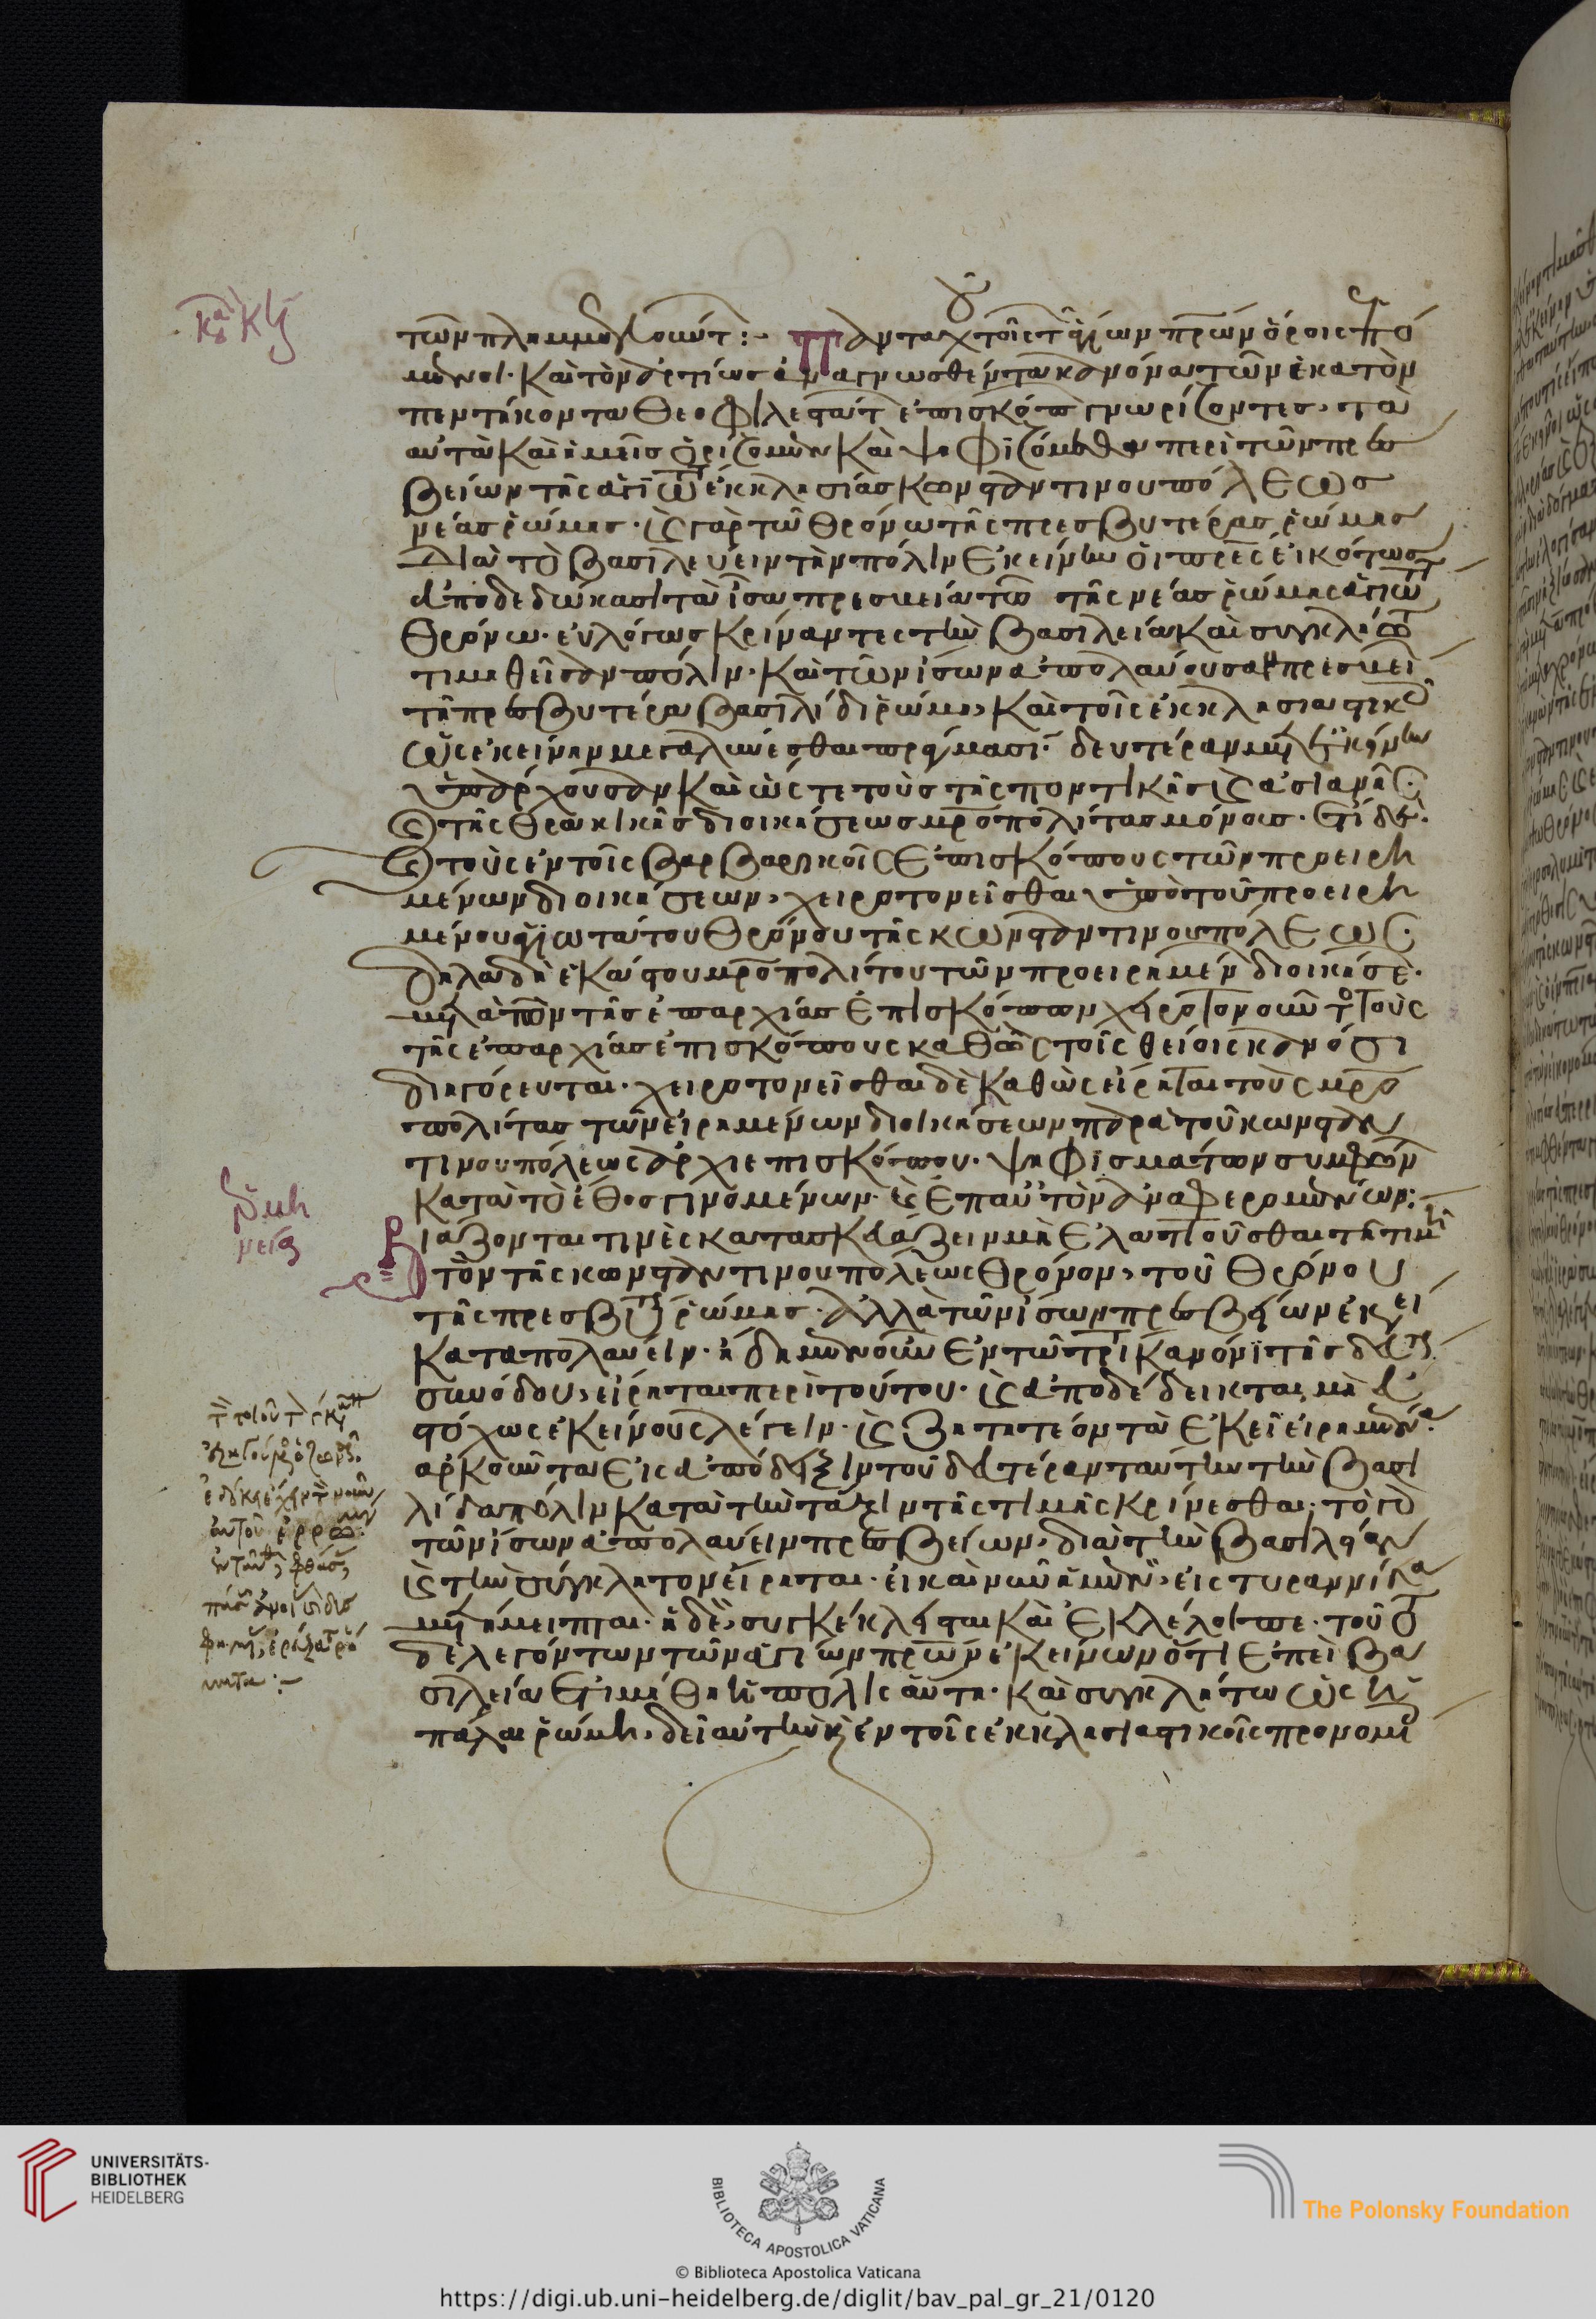 κα κη
τῶν πλημμελούντ:~ Πανταχοῦ τοῖς τῶν ἁγίων πρων ὅροις ἑπό
μενοι. Καὶ τὸν ἀρτίως ἀναγνωσθέντα κανόνα τῶν ἑκατὸν
πεντήκοντα Θεοφιλεστάτ ἐπισκόπ γνωρίζοντες, τὰ
αὐτὰ καὶ ἡμεῖς ὁρίζομεν καὶ ψηφιζόμεθα περὶ τῶν πρεσ
βείων τῆς ἁγιωτ ἐκκλησίας Κωνσταντινουπόλεως
νέας ῥώμης. καὶ γὰρ τῶ Θρόνω τῆς πρεσβυτέρας ῥώμης
Διὰ τὸ βασιλεύειν τὴν πόλιν ἐκείνην οἱ πρες εἰκότως
ἀποδεδώκασι τὰ ἴσα πρεσβεῖα τῶ τῆς νέας ῥώμης ἁγιωτ
Θρόνω. εὐλόγως κρίναντες τὴν βασιλεία καὶ συγκλήτω
τιμηθεῖσαν πόλιν. Καὶ τῶν ἴσων ἀπολαύουσαν πρεσβεί
τῆ πρεσβυτέρα βασιλίδι ῥώμη, καὶ τοῖς ἐκκλησιαστικ
ὡς ἐκείνην μεγαλύνεσθαι πράγμασι. δευτέραν μετ ἐκείνην
ὑπάρχουσαν καὶ ὥστε τοὺς τῆς ποντικῆς καὶ ἀσιανῆς
καὶ τῆς Θρακικῆς διοικήσεως μροπολίτας μόνους. ἔτι δὲ.
καὶ τοὺς ἐν τοῖς βαρβαρικοῖς ἐπισκόπους τῶν προειρη
μένων διοικήσεων, χειροτονεῖσθαι ὑπὸ τοῦ προειρη
μένου ἁγιωτάτου Θρόνου τῆς κωνσταντινουπόλεως.
δηλαδὴ ἑκάστου μροπολίτου τῶν προειρημέν διοικήσε.
μετὰ τῶν τῆς ἐπαρχίας ἐπισκόπων χειροτονοῦντος τοὺς
τῆς ἐπαρχίας ἐπισκόπους καθὼς τοῖς θείοις κανόσι
διηγόρευται. χειροτονεῖσθαι δὲ καθὼς εἴρηται τοὺς μρο
πολίτας τῶν εἰρημένων διοικήσεων παρὰ τοῦ κωνσταν
τινουπόλεως ἀρχιεπισκόπου. ψηφισμάτων συμφών
κατὰ τὸ ἔθος γινομένων. καὶ ἐπ αὐτὸν ἀναφερομένων:
ἑρμη
νεία
Βιάζονταί τινες κατασκευάζειν μὴ ἐλαττοῦσθαι τῆ τιμῆ
τὸν τῆς κωνσταντινουπόλεως Θρόνον, τοῦ Θρόνου
τῆς πρεσβυτ ῥώμης. ἀλλὰ τῶν ἴσων πρεσβείων ἐκεί
καταπολαύειν. ἤδη μὲν οὖν ἐν τῶ τρίτω κανόνι τῆς δευτ
συνόδου, εἴρηται περὶ τούτου. καὶ ἀποδέδεικται μὴ εὐ
στόχως ἐκείνους λέγειν. καὶ ζητητέον τὰ ἐκεῖ εἰρημένα.
ἀρκοῦντα εἰς ἀπόδειξιν τοῦ δευτέραν ταύτην τὴν βασι
λίδα πόλιν κατὰ τὴν τάξιν τῆς τιμῆς κρίνεσθαι. τὸ γὰρ
τῶν ἴσων ἀπολαύειν πρεσβείων, διὰ τὴν βασιλείαν
καὶ τὴν σύγκλητον εἴρηται. εἰ καὶ νῦν ἡ μὲν, εἰς τυραννίδα
μετήμειπται. ἡ δὲ, συγκέκλεισται καὶ ἐκλέλοιπε. τοῦτο
δὲ λεγόντων τῶν ἁγίων πρων ἐκείνων ὅτι ἐπεὶ βα
σιλεία ἐτιμήθη ἡ πόλις αὕτη. καὶ συγκλήτω ὡς ἡ
πάλαι ῥώμη, δεῖ αὐτὴν καὶ ἐν τοῖς ἐκκλησιαστικοῖς προνομί
UNIVERSITÄTS-
BIBLIOTHEK
HEIDELBERG
BIBLIOTECA APOSTOLICA VATICANA
The Polonsky Foundation
© Biblioteca Apostolica Vaticana
https://digi.ub.uni-heidelberg.de/diglit/bav_pal_gr_21/0120